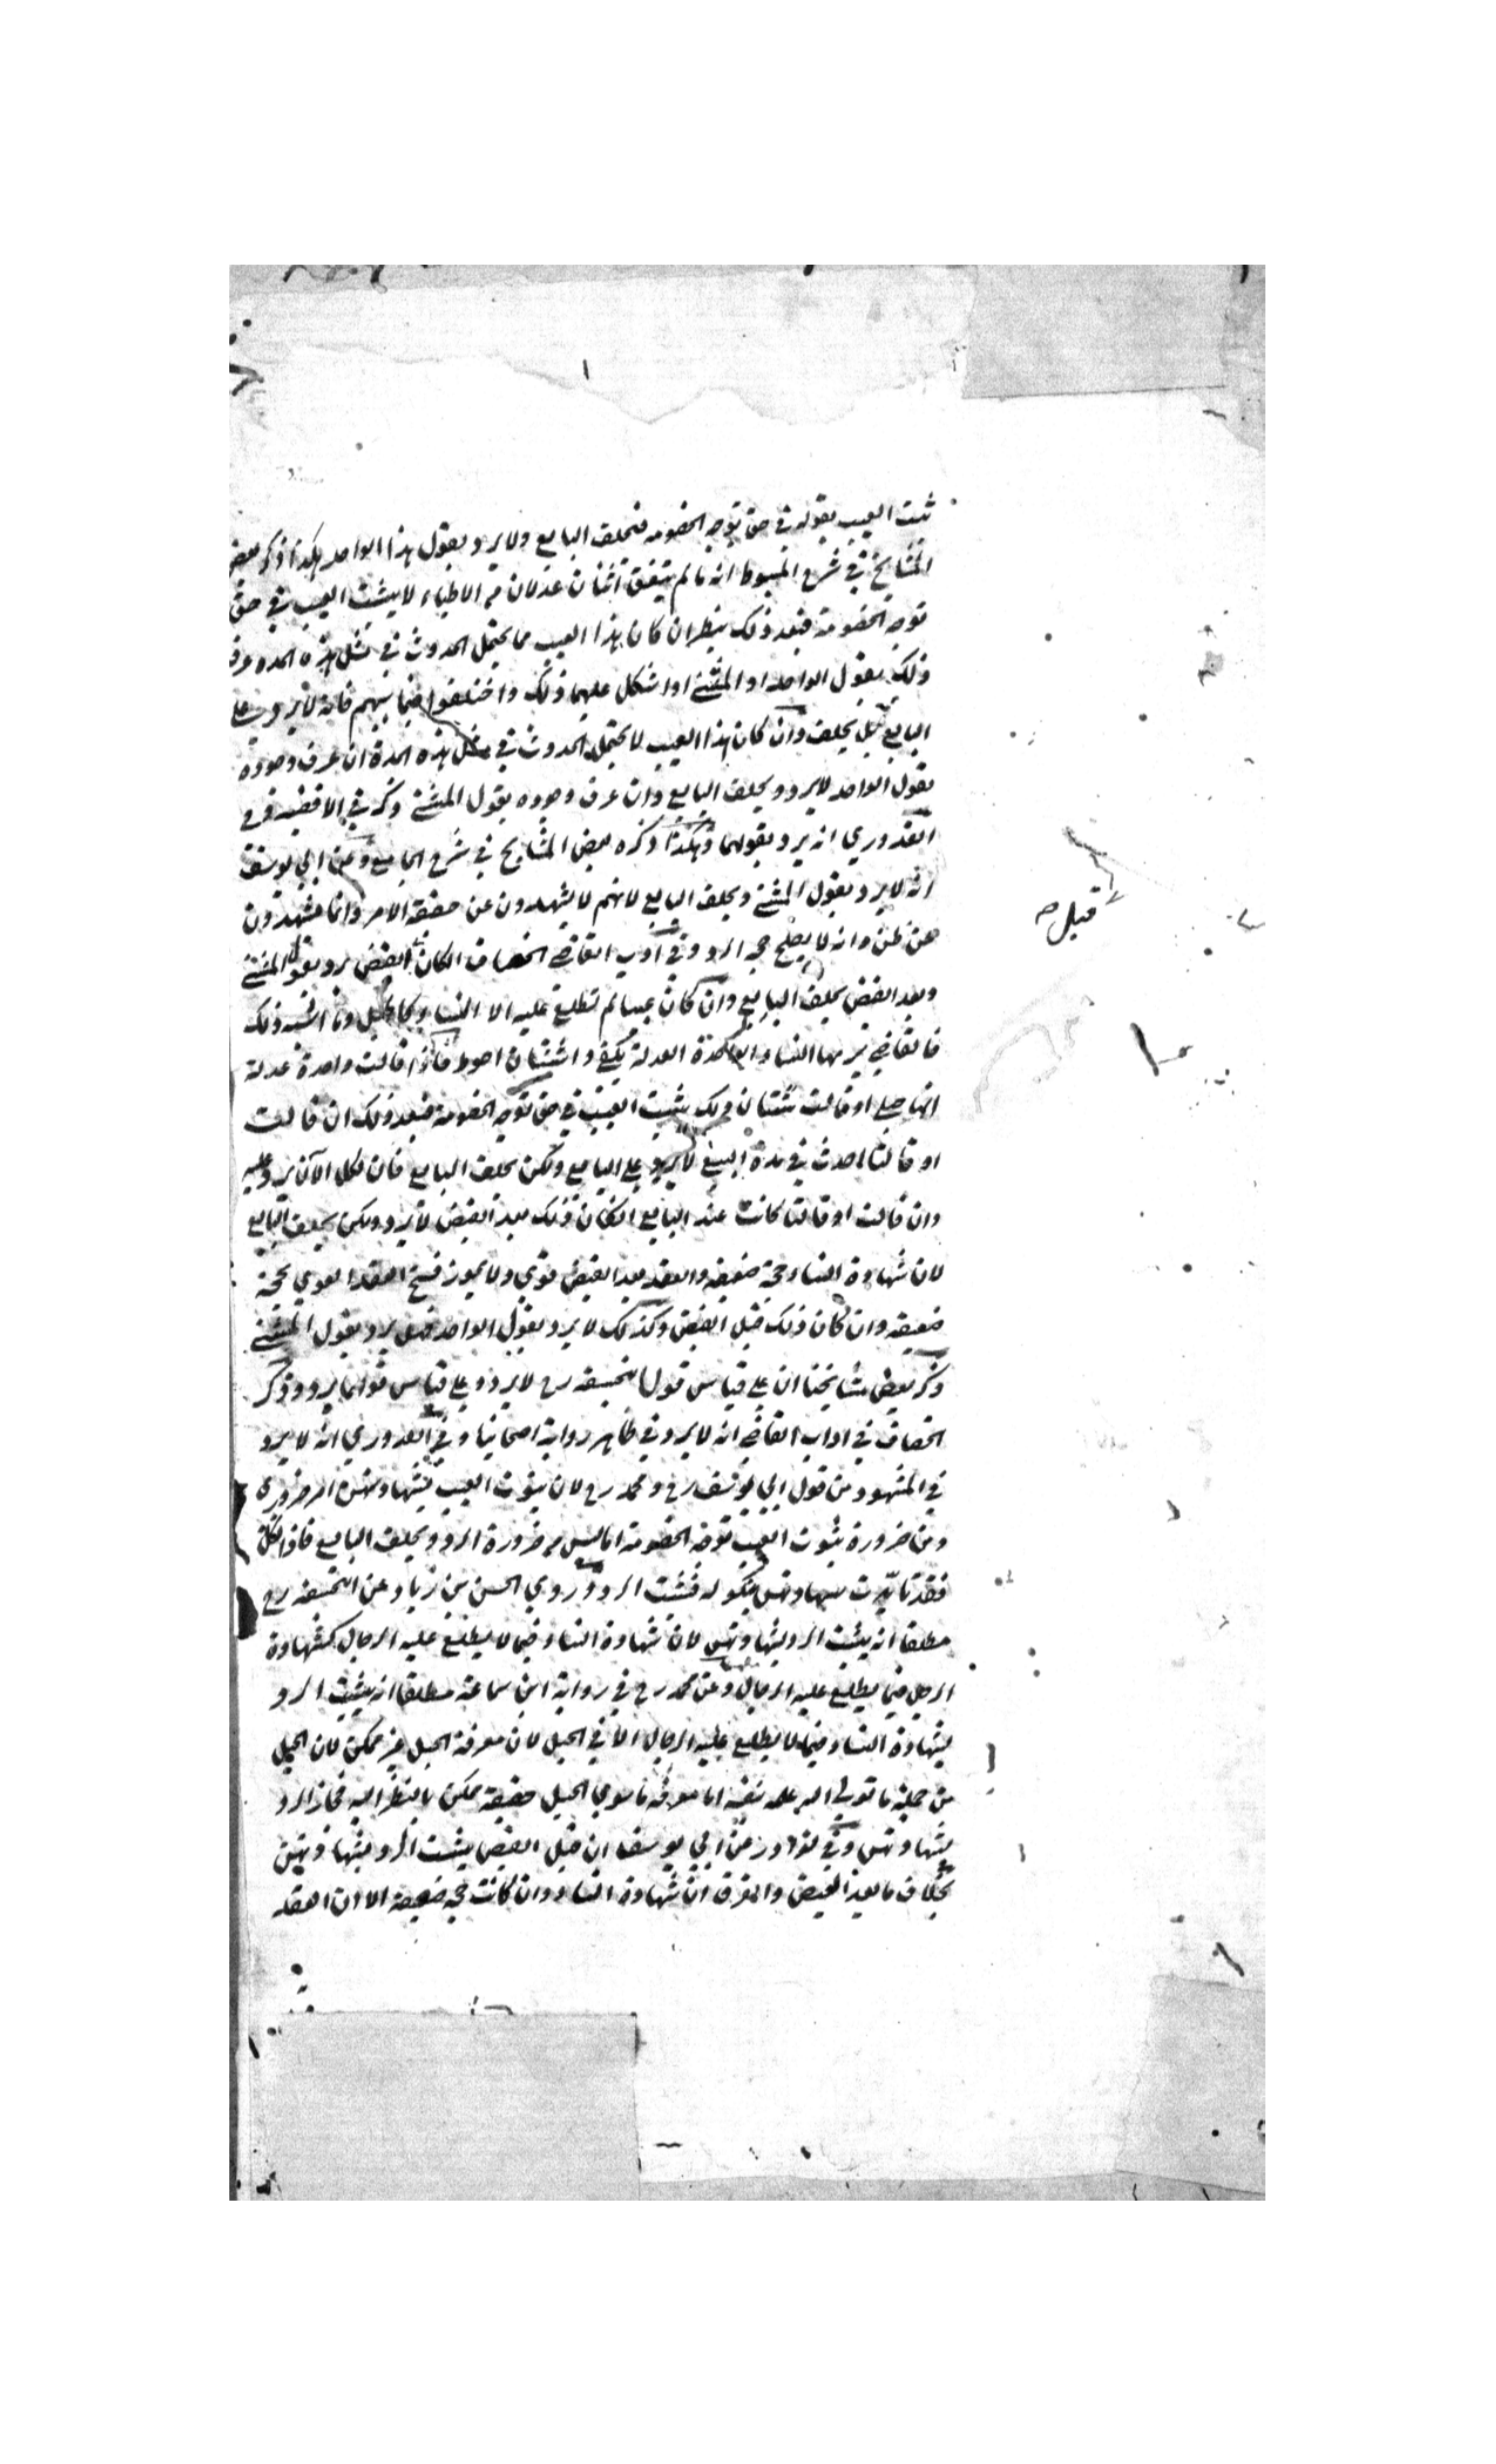 ثبت العيب بقوله في حق توجه الخصومه فيحلف البايع ولا يرد بقول هذا الواحد هكذا ذكر بعض
المشايخ في شرح المبسوط انه ما لم يتفق اثنان عدلان من الاطباء لا يثبت العيب في حق
توجه الخصومة فبعد ذلك ينظر ان كان هذا العيب مما يحتمل الحدوث في مثل هذه المده عرف
ذلك بقول الواحد او المثنى او اشكل عليهما ذلك واختلفوا فيما بينهم فانه لا يرد على
البايع بل يحلف وان كان هذا العيب لا يحتمل الحدوث في مثل هذه المدة ان عرف وجوده
بقول الواحد لا يرد ويحلف البايع وان عرف وجوده بقول المثنى ذكر في الاقضيه وفي
القدوري انه يرد بقولهما وهكذا ذكره بعض المشايخ في شرح الجامع وعن ابي يوسف
انه لا يرد بقول المثنى ويحلف البايع لانهم لا يشهدون عن حقيقة الامر وانما يشهدون
عن ظن وانه لا يصلح حجه الرد وفي ادب القاضي الخصاف ان كان القبض يرد بقول المثنى
قبل صح
وبعد القبض يحلف البايع وان كان عيبا لم تطلع عليه الا النساء كالحبل وما اشبه ذلك
فالقاضي يريها النساء الواحدة العدلة يكفي واثنتان احوط فاذا قالت واحدة عدلة
انها حبلى او قالت ثنتان ذلك يثبت العيب في حق توجه الخصومة فبعد ذلك ان قالت
او قالتا حدث في مدة البيع لا يرد على البايع ولكن يحلف البايع فان نكل الآن يرد عليه
وان قالت او قالتا كانت عند البايع ان كان ذلك بعد القبض لا يرد ولكن يحلف البايع
لان شهادة النساء حجة ضعيفه والعقد بعد القبض قوي ولا يجوز فسخ العقد القوي بحجة
ضعيفه وان كان ذلك قبل القبض وكذلك لا يرد بقول الواحد فهل يرد بقول المثنى
ذكر بعض مشايخنا ان على قياس قول ابيحنيفه رح لا يرد وعلى قياس قولهما يرد وذكر
الخصاف في اداب القاضي انه لا يرد في ظاهر رواية اصحابنا وفي القدوري انه لا يرد
في المشهود من قول ابي يوسف رح ومحمد رح لان ثبوت العيب بشهادتهن امر ضروري
ومن ضرورة ثبوت العيب توجه الخصومة اما ليس من ضرورة الرد ويحلف البايع فاذا نكل
فقد تايدت شهادتهن بنكوله فيثبت الرد وروي الحسن بن زياد عن ابيحنيفه رح
مطلقا انه يثبت الرد بشهادتهن لان شهادة النساء فيما لا يطلع عليه الرجال كشهادة
الرجل فيما يطلع عليه الرجال وعن محمد رح في رواية ابن سماعة مطلقا انه يثبت الرد
بشهادة النساء فيما لا يطلع عليه الرجال الا في الحبل لان معرفة الحبل غير ممكن لان الحبل
من جملة ما تولى الله علمه بنفسه اما معرفة ما سوي الحبل حقيقة ممكن بالنظر اليه فجاز الرد
بشهادتهن وفي نوادر عن ابي يوسف ان قبل القبض يثبت الرد بشهادتهن
بخلاف ما بعد القبض والفرق ان شهادة النساء وان كانت حجه ضعيفة الا ان العقد